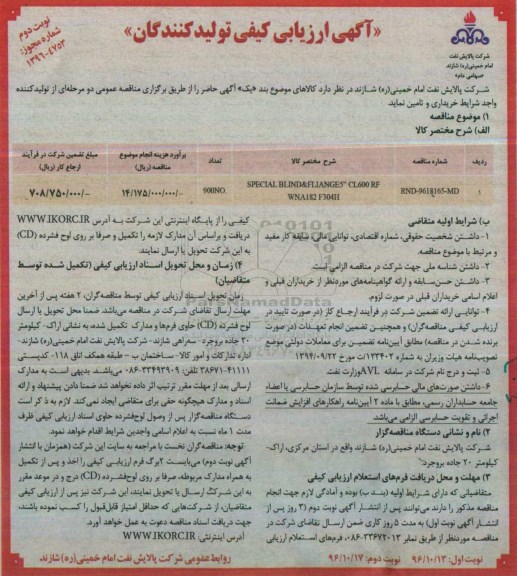 نوبت دوم
شماره مجوز:
۱۳۹۶-۴۷۵۳
«آگهی ارزیابی کیفی تولیدکنندگان»
شرکت پالایش نفت
امام خمینی(ره) شازند
«سهامی عام»
شرکت پالایش نفت امام خمینی(ره) شازند در نظر دارد کالاهای موضوع بند «یک» آگهی حاضر را از طریق برگزاری مناقصه عمومی دو مرحله‌ای از تولیدکننده
واجد شرایط خریداری و تامین نماید.
۱) موضوع مناقصه
الف) شرح مختصر کالا
ردیف
شماره مناقصه
شرح مختصر کالا
تعداد
برآورد هزینه انجام موضوع مناقصه (ریال)
مبلغ تضمین شرکت در فرآیند ارجاع کار (ریال)
۱
RND-9618165-MD
SPECIAL BLIND&FLIANGE5" CL600 RF
WNA182 F304H
900NO.
۱۴/۱۷۵/۰۰۰/۰۰۰/-
۷۰۸/۷۵۰/۰۰۰/-
ب) شرایط اولیه متقاضی
۱- داشتن شخصیت حقوقی، شماره اقتصادی، توانایی مالی، سابقه کار مفید
و مرتبط با موضوع مناقصه.
۲- داشتن شناسه ملی جهت شرکت در مناقصه الزامی است.
۳- داشتن حسن‌سابقه و ارائه گواهینامه‌های موردنظر از خریداران قبلی و
اعلام اسامی خریداران قبلی در صورت لزوم.
۴- توانایی ارائه تضمین شرکت در فرآیند ارجاع کار (در صورت تایید در
ارزیابی کیفی مناقصه‌گران) و همچنین تضمین انجام تعهدات (در صورت
برنده شدن در مناقصه) مطابق آیین‌نامه تضمین برای معاملات دولتی موضع
تصویب‌نامه هیات وزیران به شماره ۱۲۳۴۰۲/ت مورخ ۱۳۹۴/۰۹/۲۲
۵- ثبت و درج نام شرکت در سامانه AVL وزارت نفت.
۶- داشتن صورت‌های مالی حسابرسی شده توسط سازمان حسابرسی یا اعضاء
جامعه حسابداران رسمی، مطابق با ماده ۲ آیین‌نامه راهکارهای افزایش ضمانت
اجرائی و تقویت حسابرسی الزامی می‌باشد.
۲) نام و نشانی دستگاه مناقصه‌گزار
شرکت پالایش نفت امام خمینی(ره) شازند واقع در استان مرکزی، اراک-
کیلومتر ۲۰ جاده بروجرد
۳) مهلت و محل دریافت فرم‌های استعلام ارزیابی کیفی
متقاضیانی که دارای شرایط اولیه (بند ب) بوده و آمادگی لازم جهت انجام
مناقصه مذکور را دارند می‌توانند پس از انتشار آگهی نوبت دوم (۳ روز پس از
انتشار آگهی نوبت اول) به مدت ۵ روز کاری ضمن ارسال تقاضای شرکت در
مناقصه موردنظر از طریق نمابر ۳۳۶۷۲۰۱۳-۰۸۶، فرم‌های استعلام ارزیابی
کیفی را از پایگاه اینترنتی این شرکت به آدرس WWW.IKORC.IR
دریافت و براساس آن مدارک لازمه را تکمیل و صرفا بر روی لوح فشرده (CD)
به این شرکت تحویل یا ارسال نمایند.
۴) زمان و محل تحویل اسناد ارزیابی کیفی (تکمیل شده توسط
متقاضیان)
زمان تحویل اسناد ارزیابی کیفی توسط مناقصه‌گران، ۲ هفته پس از آخرین
مهلت ارسال تقاضای شرکت در مناقصه می‌باشد. ضمنا محل تحویل یا ارسال
لوح فشرده (CD) حاوی فرم‌ها و مدارک تکمیل شده، به نشانی اراک- کیلومتر
۲۰ جاده بروجرد- سه‌راهی شازند- شرکت پالایش نفت امام خمینی(ره) شازند-
اداره تدارکات و امور کالا- ساختمان ب - طبقه همکف اتاق ۱۱۸- کدپستی
۳۸۶۷۱-۴۱۱۱۱ تلفن: ۳۳۴۹۳۹۰۹-۰۸۶ می‌باشد. بدیهی است به مدارک
ارسالی بعد از مهلت مقرر ترتیب اثر داده نخواهد شد ضمنا دادن پیشنهاد و ارائه
اسناد و مدارک هیچگونه حقی برای متقاضی ایجاد نمی‌کند. لازم به ذکر است
دستگاه مناقصه‌گزار پس از وصول لوح‌فشرده حاوی اسناد ارزیابی کیفی ظرف
مدت ۱ ماه نسبت به اعلام اسامی واجدین شرایط اقدام خواهد نمود.
توجه: مناقصه‌گران نخست با مراجعه به سایت این شرکت (همزمان با انتشار
آگهی نوبت دوم) می‌بایست ۲ برگ فرم ارزیابی کیفی را اخذ و پس از تکمیل
به همراه مدارک مربوطه، صرفا بر روی لوح‌فشرده (CD) درج و در موعد مقرر
به این شرکت ارسال یا تحویل نمایند، این شرکت نیز پس از ارزیابی کیفی
متقاضیان، از شرکت‌هایی که حداقل امتیاز قابل‌قبول را کسب نموده باشند،
جهت دریافت اسناد مناقصه دعوت به عمل خواهد آورد.
آدرس اینترنتی: WWW.IKORC.IR
نوبت اول: ۹۶/۱۰/۱۳ نوبت دوم: ۹۶/۱۰/۱۷
روابط عمومی شرکت پالایش نفت امام خمینی(ره) شازند